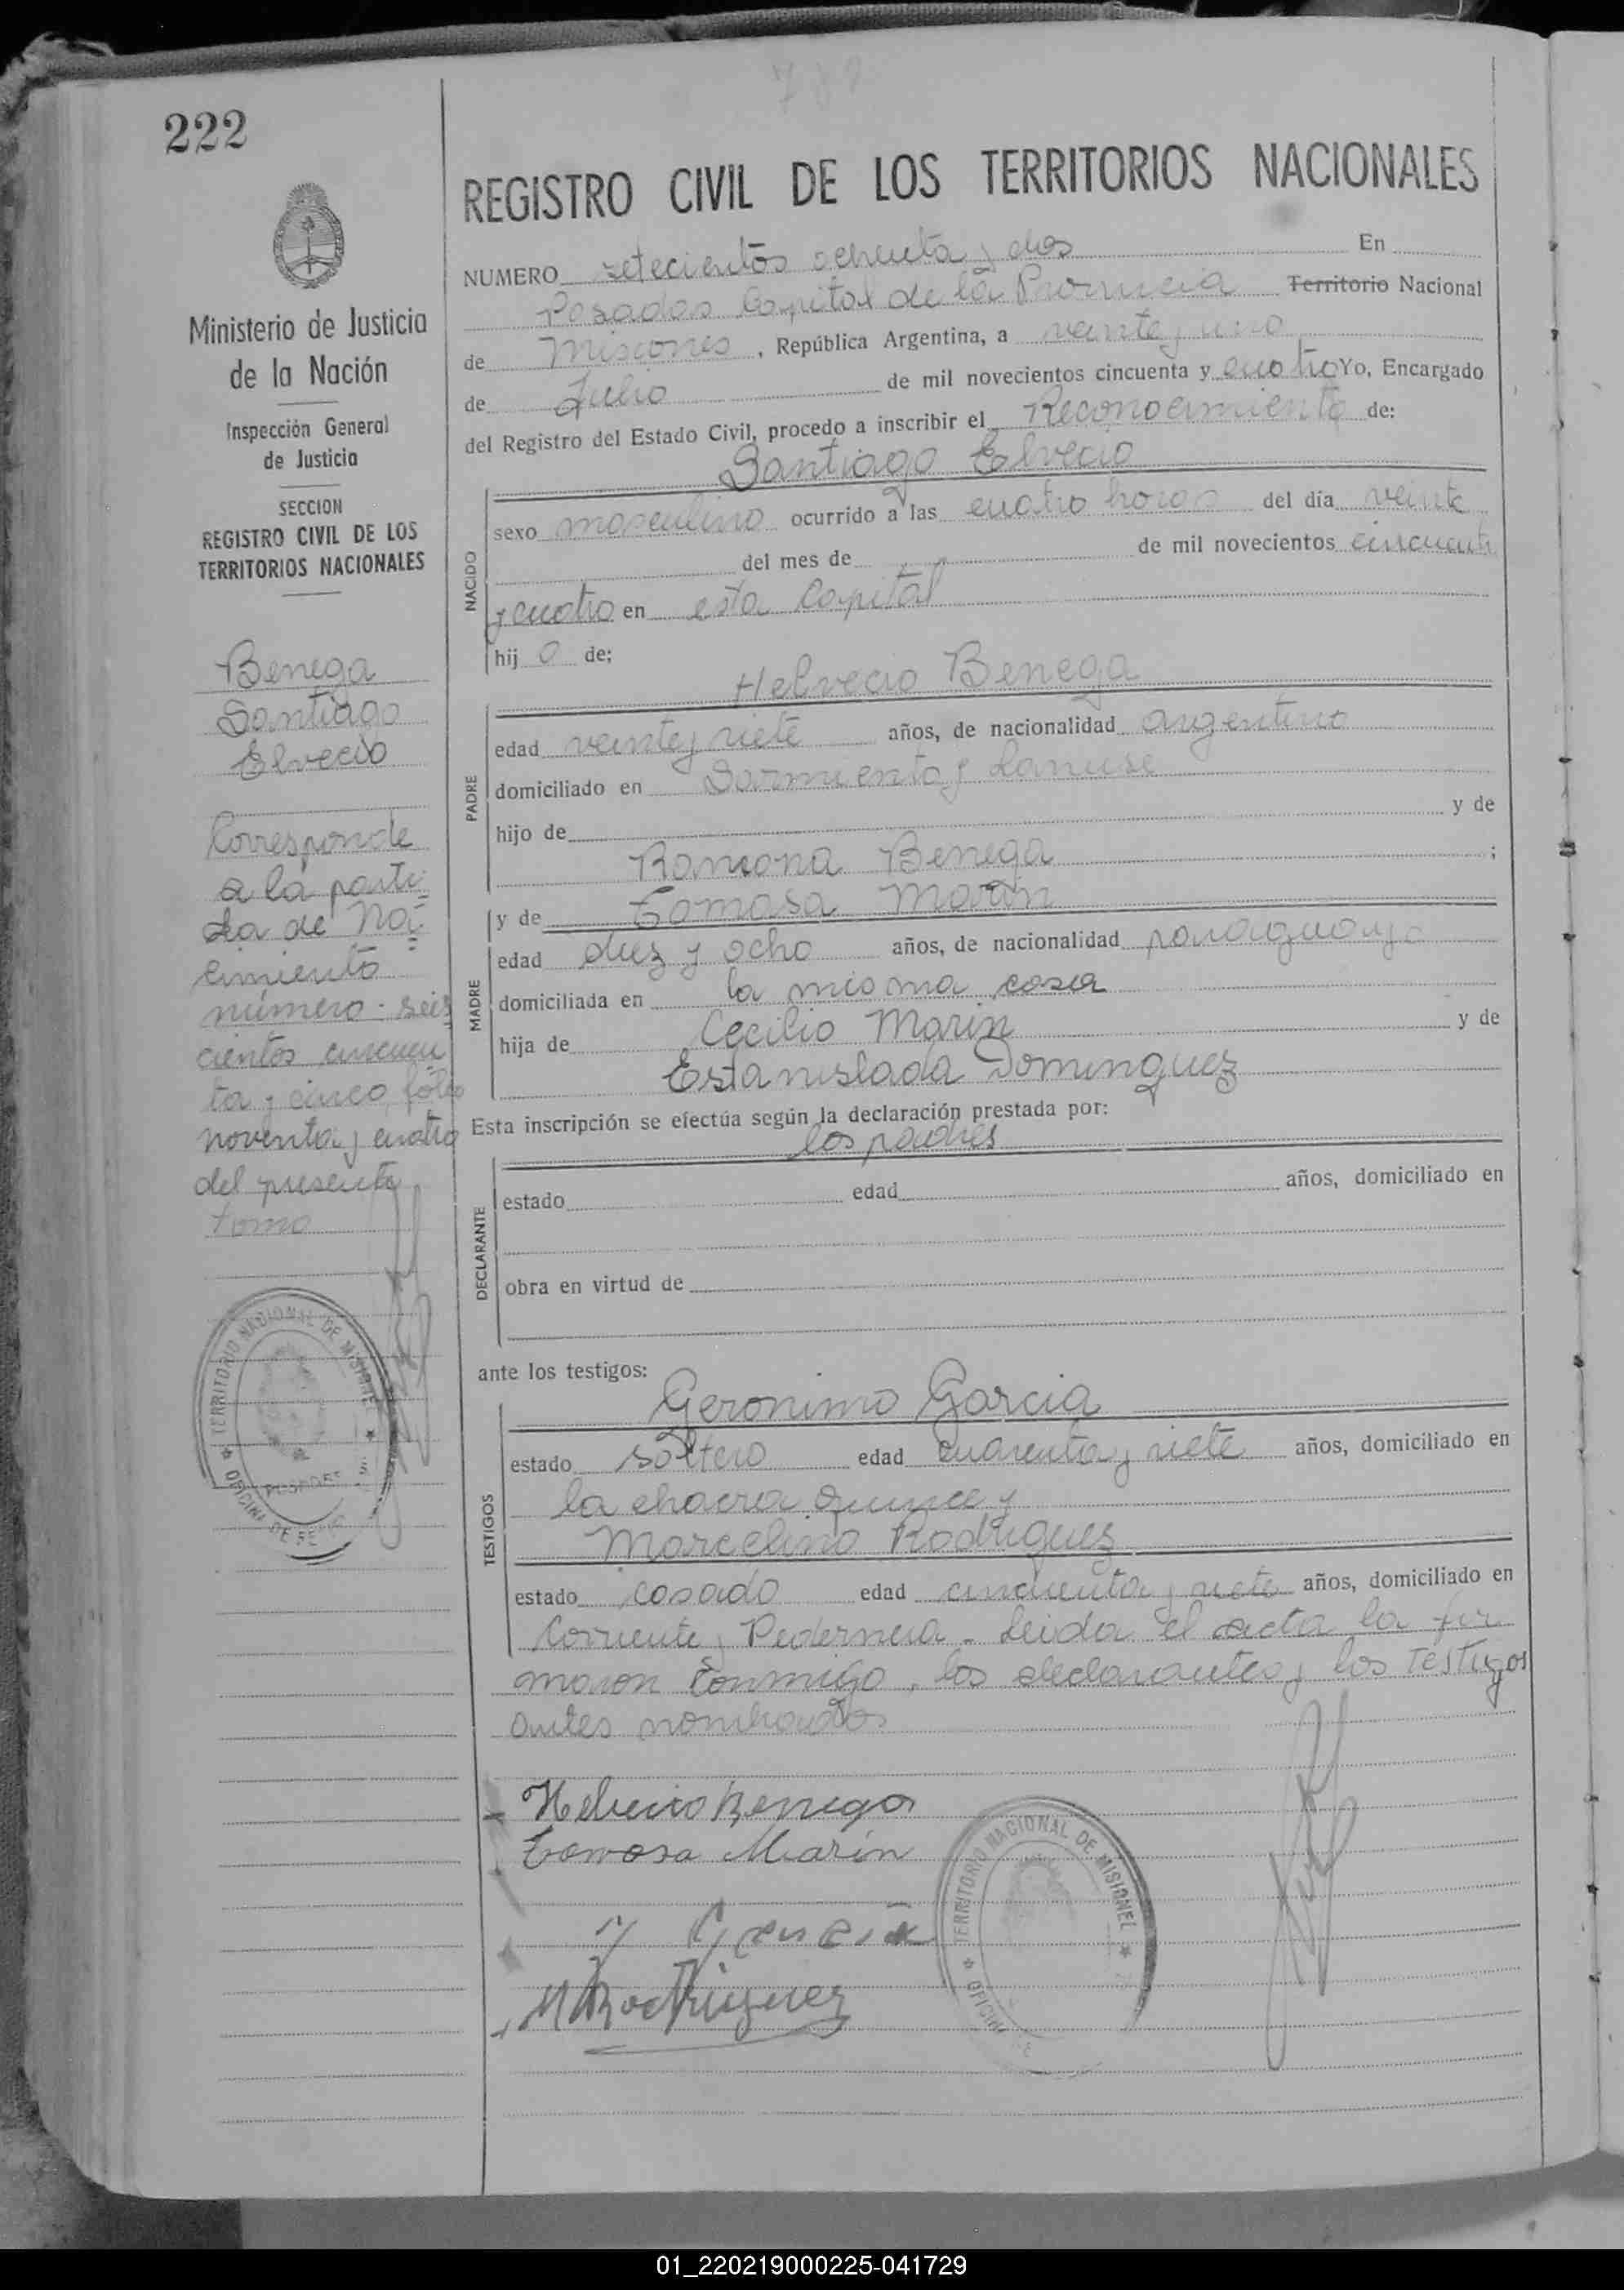 782
222
REGISTRO CIVIL DE LOS TERRITORIOS NACIONALES
NUMERO setecientos ochenta y dos En
Posadas Capital de la Provincia Territorio Nacional
de Misiones, República Argentina, a veinte y uno
de Julio de mil novecientos cincuenta y cuatro Yo, Encargado
del Registro del Estado Civil, procedo a inscribir el Reconocimiento de:
Santiago Elvecio
NACIDO
sexo masculino ocurrido a las cuatro horas del día veinte
del mes de de mil novecientos cincuenta
y cuatro en esta Capital
hijo de;
Helvecio Benega
PADRE
edad veinte y siete años, de nacionalidad argentino
domiciliado en Sarmiento y Lanuse
hijo de y de
Ramona Benega ;
y de Tomasa Marin
MADRE
edad diez y ocho años, de nacionalidad paraguaya
domiciliada en la misma casa
hija de Cecilio Marin y de
Estanislada Dominguez
Esta inscripción se efectúa según la declaración prestada por:
los padres
DECLARANTE
estado edad años, domiciliado en
obra en virtud de
ante los testigos:
Geronimo Garcia
TESTIGOS
estado soltero edad cuarenta y siete años, domiciliado en
la chacra quince y
Marcelino Rodriguez
estado casado edad cincuenta y siete años, domiciliado en
Corriente y Pedernera - Leida el acta la fir
maron conmigo, los declarantes y los testigos
antes nombrados
Helvecio Benega
Tomasa Marin
Garcia
M Rodriguez
TERRITORIO NACIONAL DE MISIONES
OFICINA
Ministerio de Justicia
de la Nación
Inspección General
de Justicia
SECCION
REGISTRO CIVIL DE LOS
TERRITORIOS NACIONALES
Benega
Santiago
Elvecio
Corresponde
a la parti=
da de Na=
cimiento
número - seis
cientos cincuen
ta y cinco, folio
noventa y cuatro
del presente
tomo
TERRITORIO NACIONAL DE MISIONES
POSADAS
OFICINA DE
01_220219000225-041729